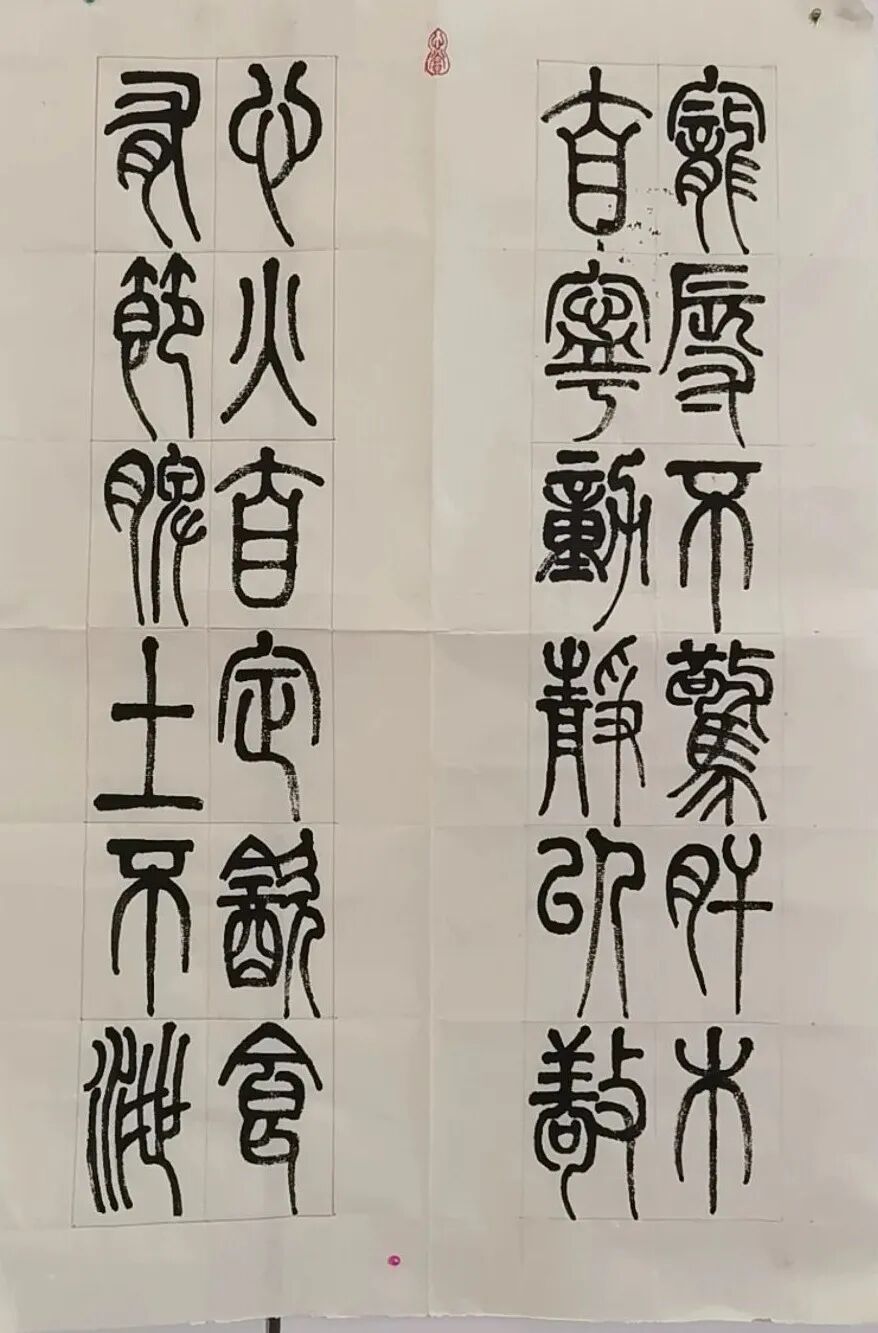 寵辱不驚肝木
自寧動靜以敬
心火自定飲食
有節脾土不泄